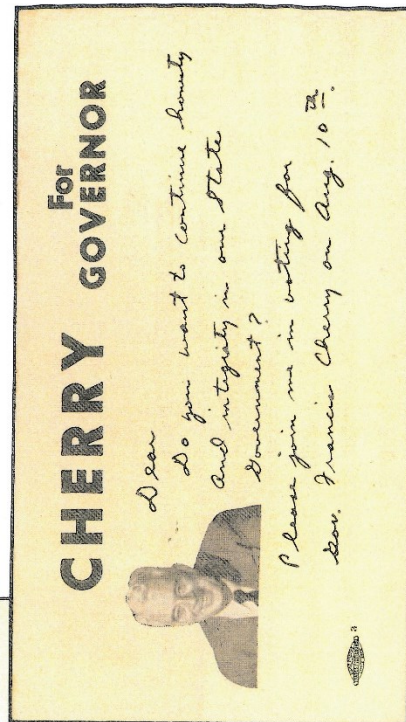 CHERRY For GOVERNOR
Dear
Do you want to continue honesty
and integrity in our State
Government?
Please join me in voting for
Gov. Francis Cherry on Aug. 10th.